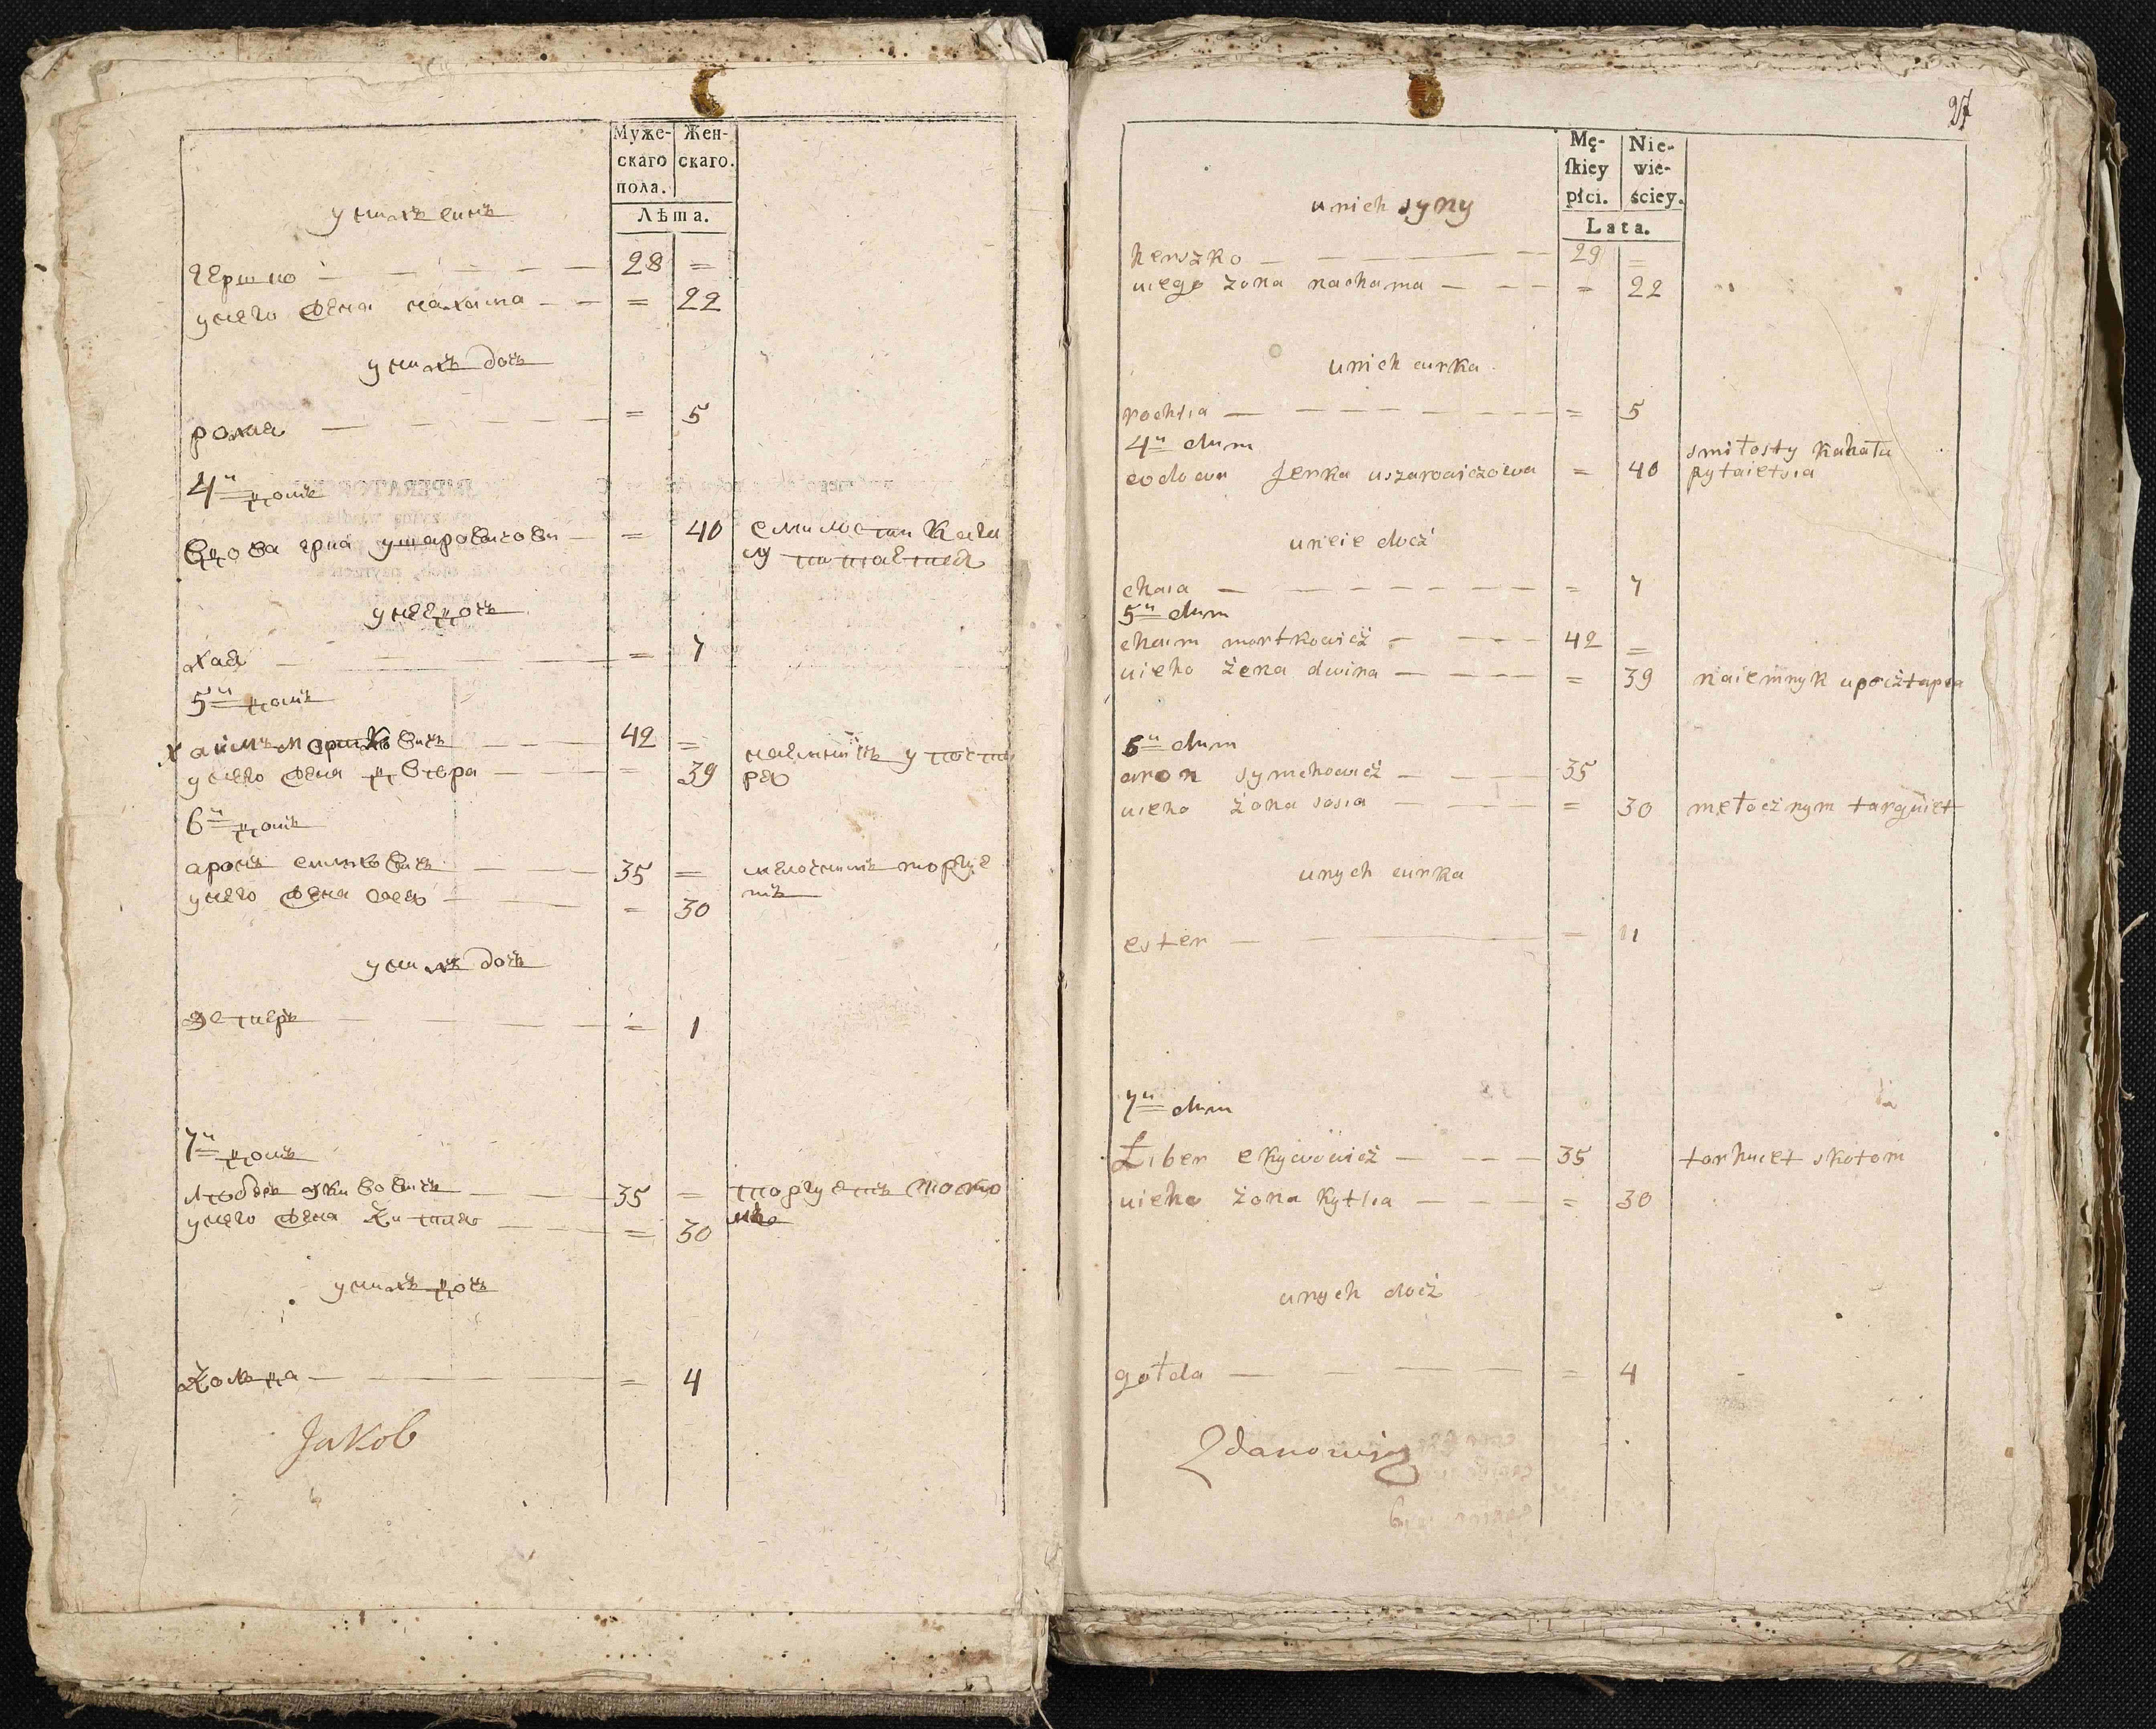 Муже-
скаго
пола.
Жен-
скаго.
Лѣта.
у нихъ синъ
гершко — — — — — 28 =
у него жена нахама — — = 22
у нихъ дочь
рохля — — — — = 5
4й домъ
вдова ерка ушаровичови — = 40 смилости кага
лу питается
у нее дочь
хая — — — = 7
5й домъ
хаимъ мортковичъ — — — 42 =
у него жена двера — — — = 39 наемникъ у почта
ря
6й домъ
аронъ симховичъ — — — 35 = мелочнимъ торгуе
тъ
у него жена сося — — — = 30
у нихъ дочь
эстеръ — — — — = 1
7й домъ
любер экивовичъ — — — 35 = торгуетъ ското
мъ
у него жена китля — — — = 30
у нихъ дочь
голда — — — — = 4
Jakob
27
Mę-
ſkiey
płci.
Nie-
wie-
ściey.
Lata.
unich syny
herszko — — — — — 29 =
uiego żona nachama — — — = 22
unich curka
rochla — — — — — = 5
4y dum
wdowa Jerka uszarowiczowa = 40 smiłosty kahału
pytaietsia
uneie docż
chaia — — — — — = 7
5y dum
chaim mortkowicż — — — 42 =
uieho żena dwira — — — = 39 naiemnyk upocżtapia
6y dum
aron symchowicż — — — 35
uieho żona sosia — — — = 30 mełocżnym targuiet
unych curka
ester — — — = 11
7y dum
Liber ekywowicż — — — 35 torhuiet skotom
uieho żona kytla — — — = 30
unych docż
gołda — — — = 4
Zdanowicz